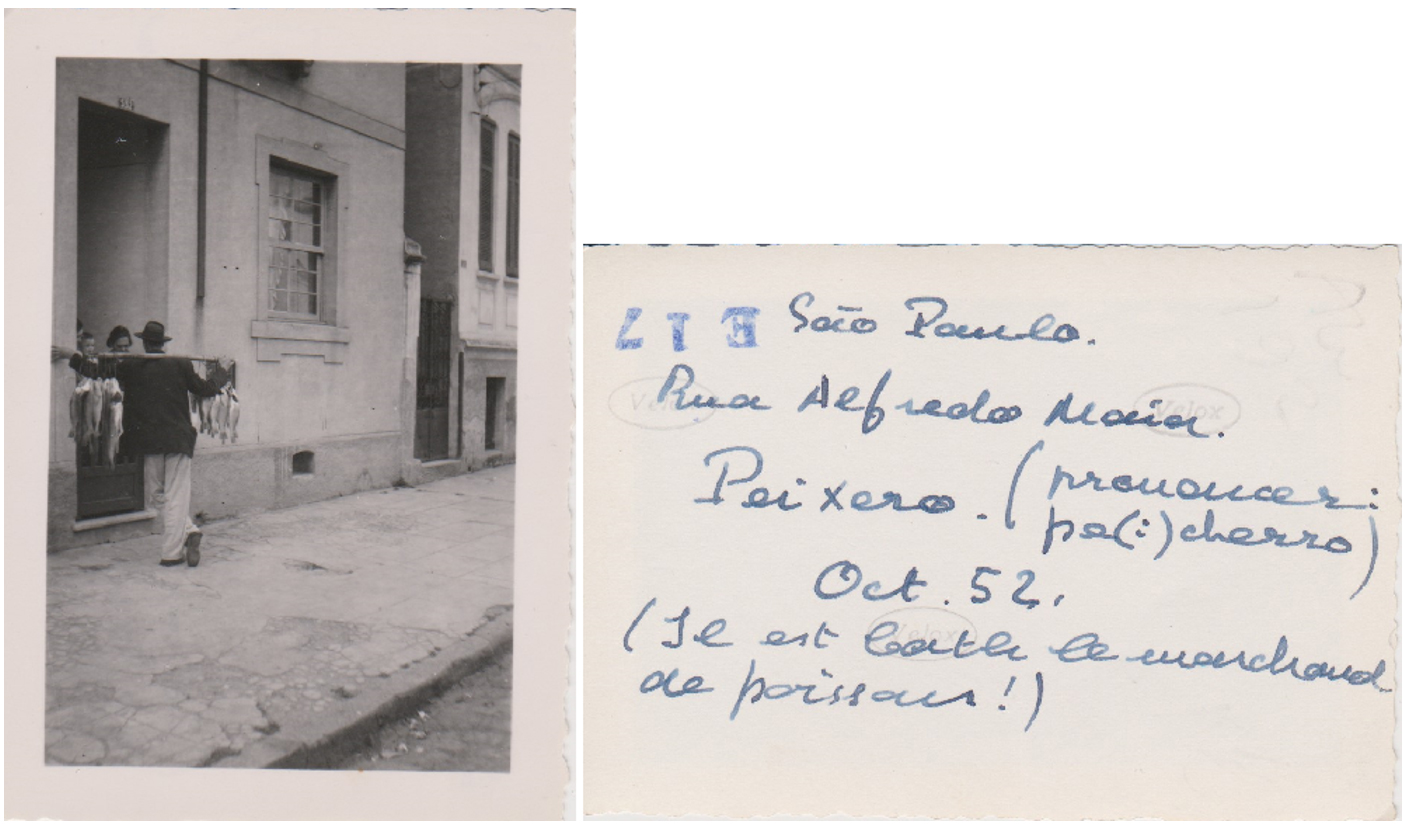 E 17
São Paulo.
Rua Alfredo Maia.
Peixero. (prononcer:
pe(i)cherro)
Oct. 52.
(Il est bath le marchand
de poissons!)
Velox
Velox
Velox